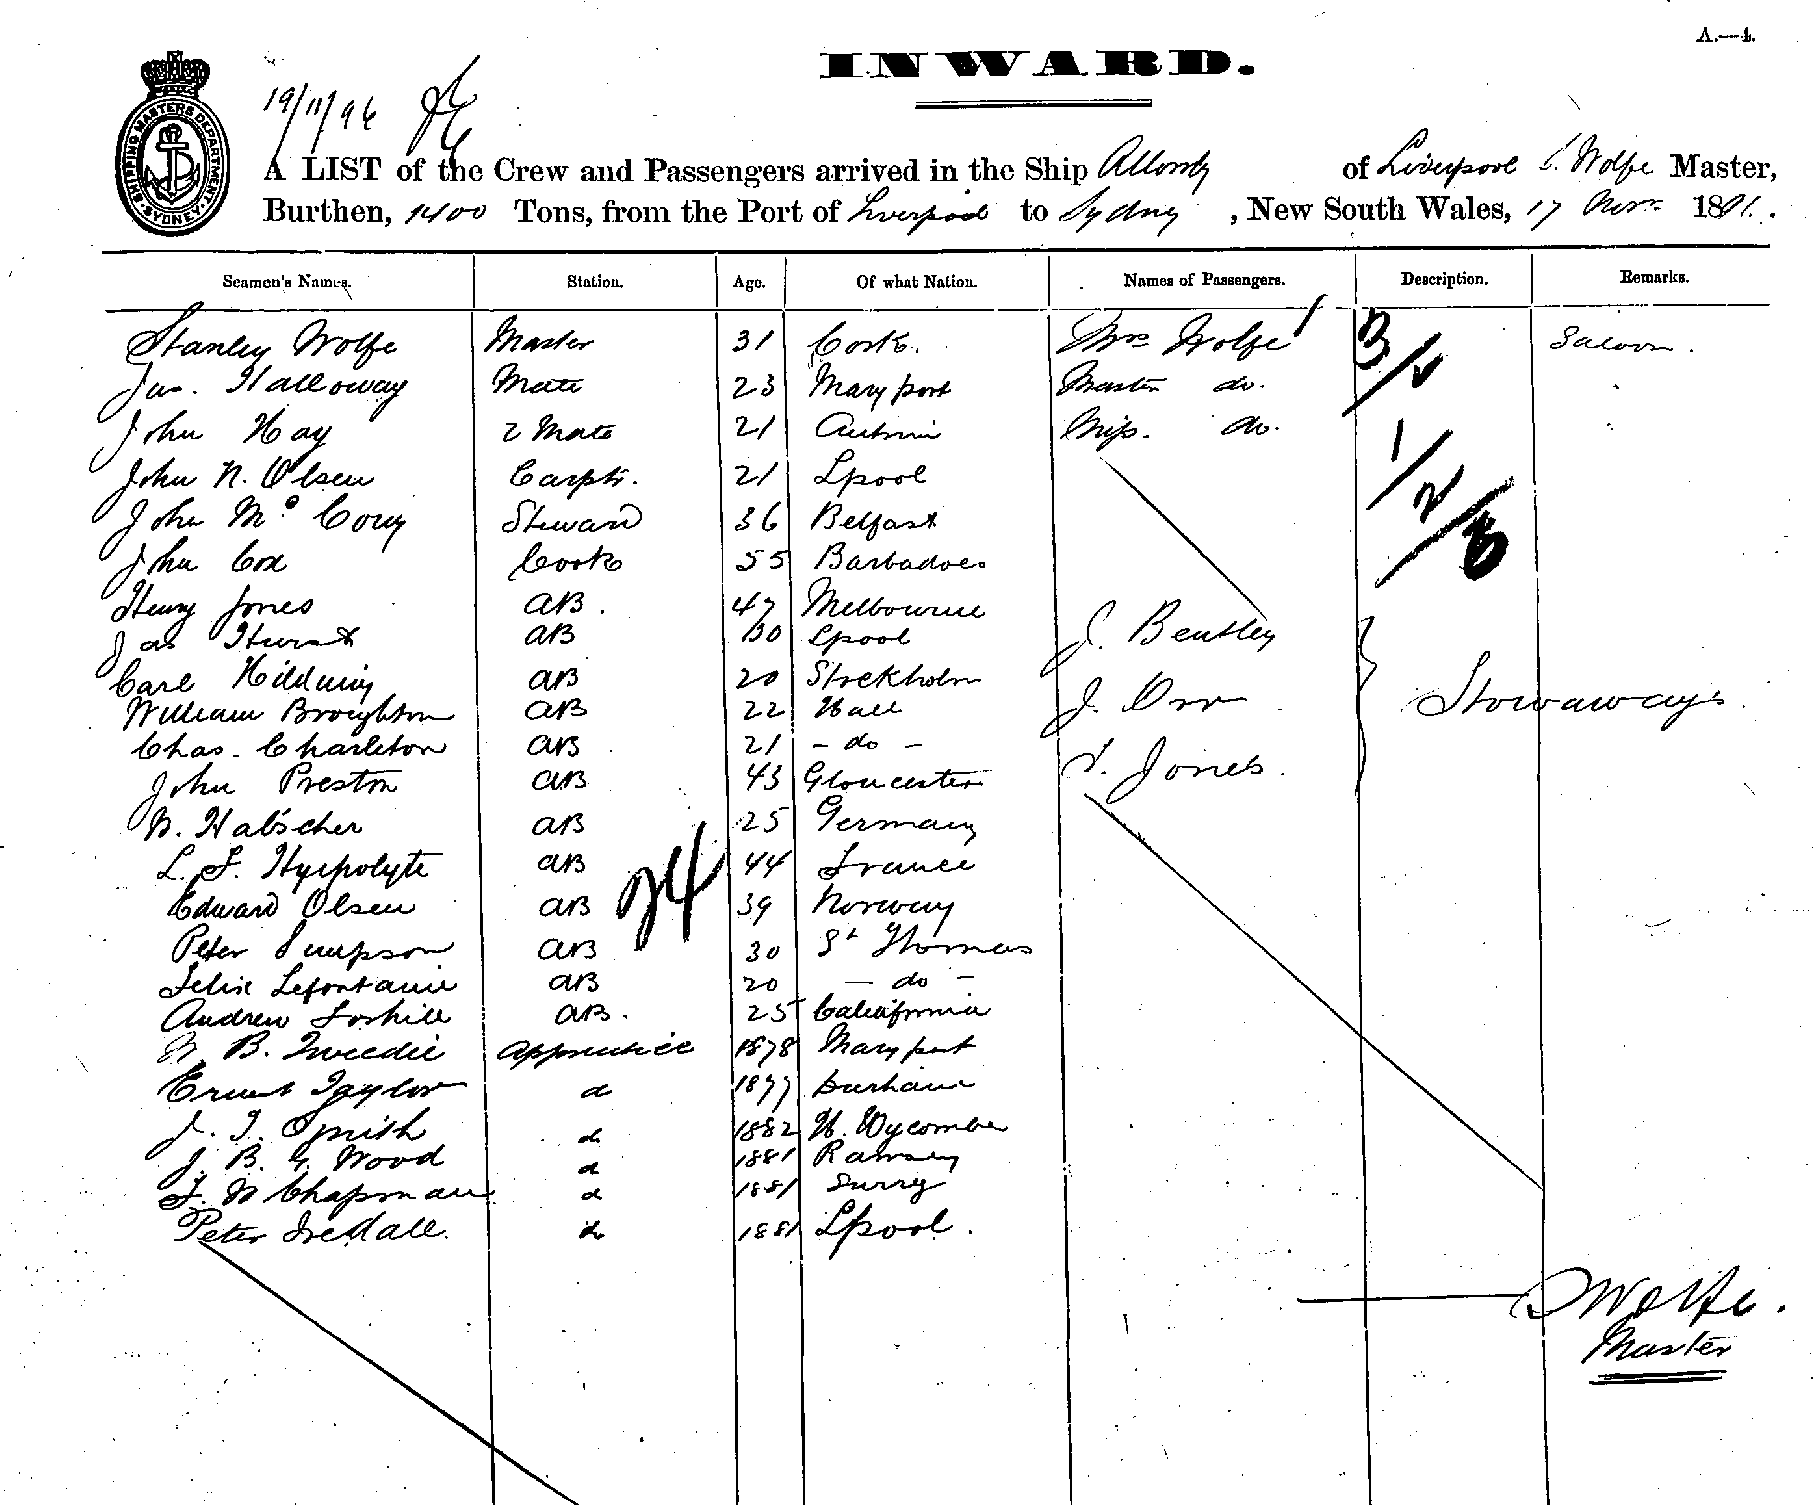 A.—4.
INWARD.
19/11/96
SHIPPING MASTERS DEPARTMENT. SYDNEY
A LIST of the Crew and Passengers arrived in the Ship Allonby of Liverpool S. Wolfe Master,
Burthen, 1400 Tons, from the Port of Liverpool to Sydney, New South Wales, 17 Novr 189
Seamen's Names. Station. Age. Of what Nation. Names of Passengers. Description. Remarks.
Stanley Wolfe Master 31 Cork. Mrs Wolfe Saloon.
Jas. Halloway Mate 23 Maryport Master do.
John Hay 2 Mate 21 Antrim Miss. do.
John N. Olsen Carptr. 21 Lpool
John Mc Steward 36 Belfast
John Cox Cook 55 Barbadoes
Henry Jones AB. 47 Melbourne
Jas Stewart AB 30 Lpool J. Bentley
Carl AB 20 Stockholm
William Broughton AB 22 Hull J. Orr Stowaways
Chas. Charleton AB 21 - do -
John Preston AB 43 Gloucester Jones.
Habscher AB 25 Germany
L. F. Hyppolyte AB 44 France
24
Edward Olsen AB 39 Norway
Peter Simpson AB 30 St Thomas
Felix Lefontaine AB 20 - do -
Andrew AB. 25 California
B. Tweedie Apprentice 1878 Maryport
Ernest Taylor d 1877 Durham
J. T. Smith d 1882 H. Wycombe
J. B. G. Wood d 1881 Ramsey
F. W Chapman d 1881 Surry
Peter Iredall. d 1881 Lpool.
3/
1/2/3
S Wolfe.
Master